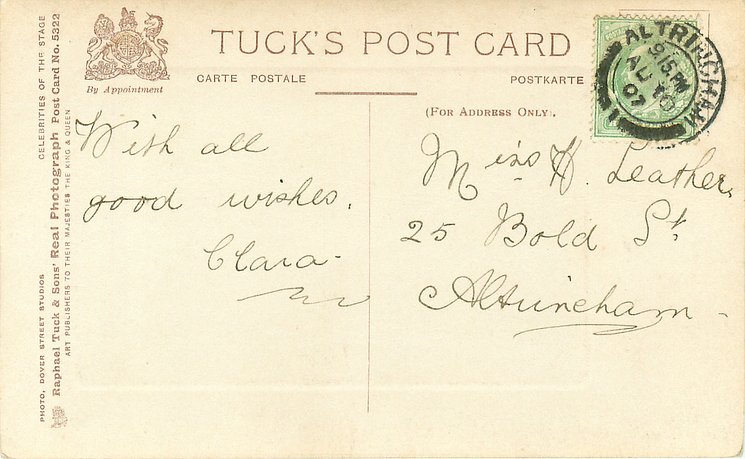 TUCK'S POST CARD
By Appointment
CARTE POSTALE
POSTKARTE
(FOR ADDRESS ONLY).
ALTRINCHAM
9 15 PM
AU 10
07
1
With all
good wishes.
Clara
Miss H. Leather
25 Bold St
Altrincham
CELEBRITIES OF THE STAGE
PHOTO, DOVER STREET STUDIOS
Raphael Tuck & Sons' Real Photograph Post Card No. 5322
ART PUBLISHERS TO THEIR MAJESTIES THE KING & QUEEN